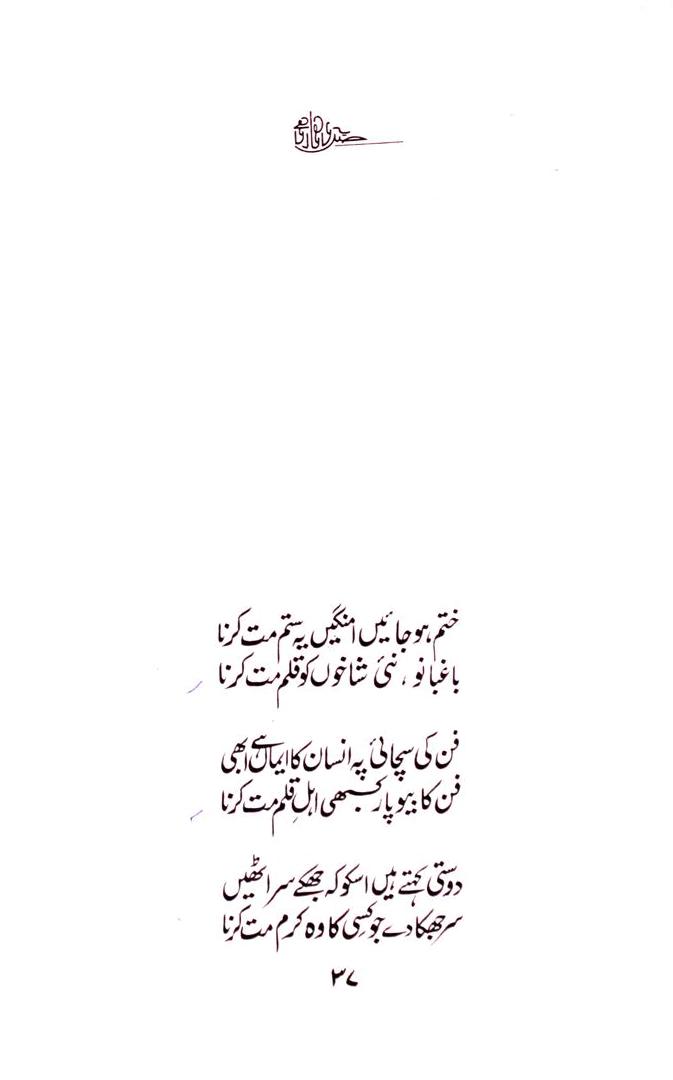 ختم ہو جائیں امنگیں یہ ستم مت کرنا
باغبانو ، نئی شاخوں کو قلم مت کرنا
فن کی سچائی پہ انسان کا ایماں ہے ابھی
فن کا بیوپار کبھی اہلِ قلم مت کرنا
دوستی کہتے ہیں اسکو کہ جھکے سر اٹھیں
سر جھکا دے جو کسی کا وہ کرم مت کرنا
۳۷